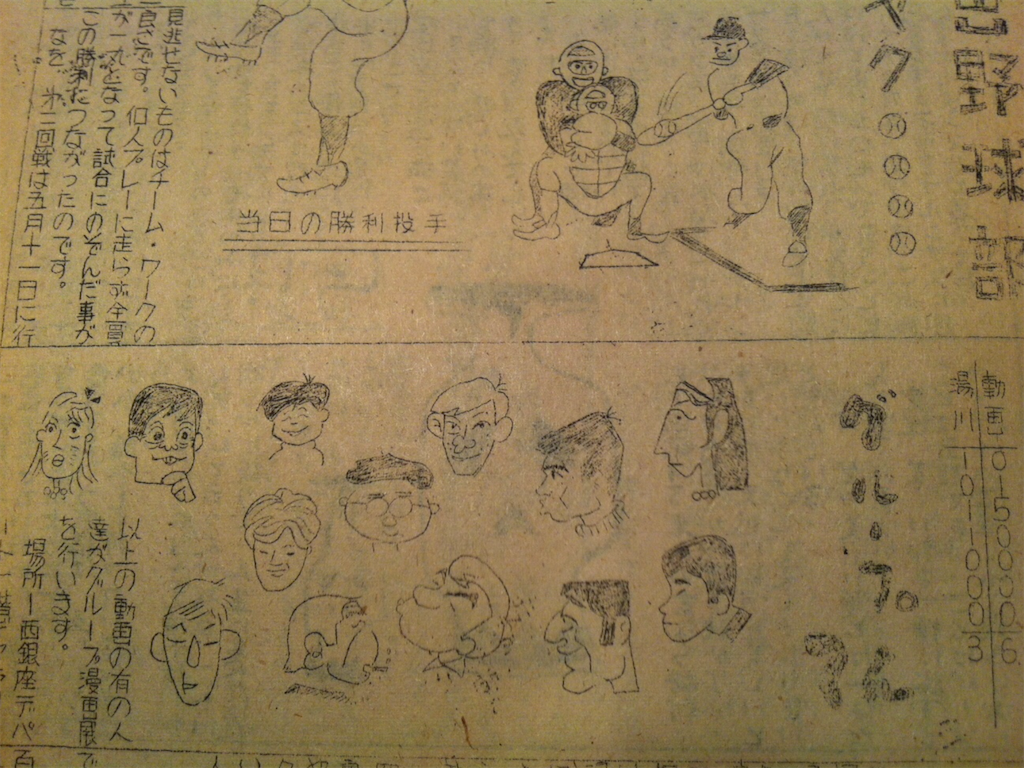 野球部
ク
当日の勝利投手
見逃せないものはチーム・ワークの
良さです。個人プレーに走らず全員
が一丸となって試合にのぞんだ事が
この勝利につながったのです。
なを、第二回戦は五月十一日に行
動画 0150000 6
湯川 1011000 3
グループ
てん
以上の動画の有の人
達がグループ漫画展
を行います。
場所ー西銀座デパ